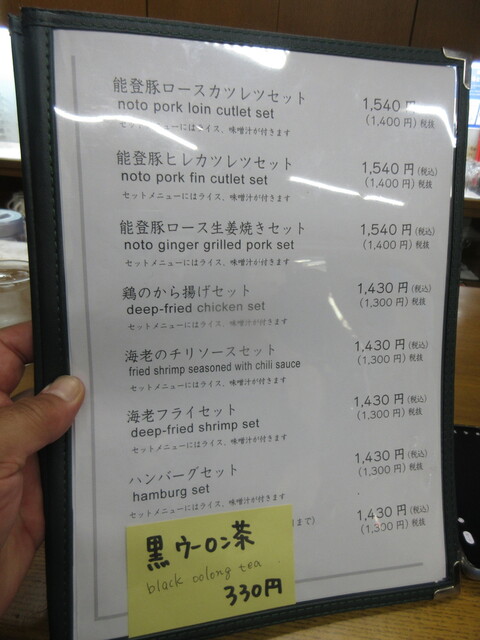 能登豚ロースカツレツセット 1,540 円
noto pork loin cutlet set (1,400 円) 税抜
セットメニューにはライス、味噌汁が付きます
能登豚ヒレカツレツセット 1,540 円 (税込)
noto pork fin cutlet set (1,400 円) 税抜
セットメニューにはライス、味噌汁が付きます
能登豚ロース生姜焼きセット 1,540 円 (税込)
noto ginger grilled pork set (1,400 円) 税抜
セットメニューにはライス、味噌汁が付きます
鶏のから揚げセット 1,430 円 (税込)
deep-fried chicken set (1,300 円) 税抜
セットメニューにはライス、味噌汁が付きます
海老のチリソースセット 1,430 円 (税込)
fried shrimp seasoned with chili sauce (1,300 円) 税抜
セットメニューにはライス、味噌汁が付きます
海老フライセット 1,430 円 (税込)
deep-fried shrimp set (1,300 円) 税抜
セットメニューにはライス、味噌汁が付きます
ハンバーグセット 1,430 円 (税込)
hamburg set (1,300 円) 税抜
セットメニューにはライス、味噌汁が付きます
まで) 1,430 円 (税込)
(1,300 円) 税抜
黒ウーロン茶
black oolong tea
330円